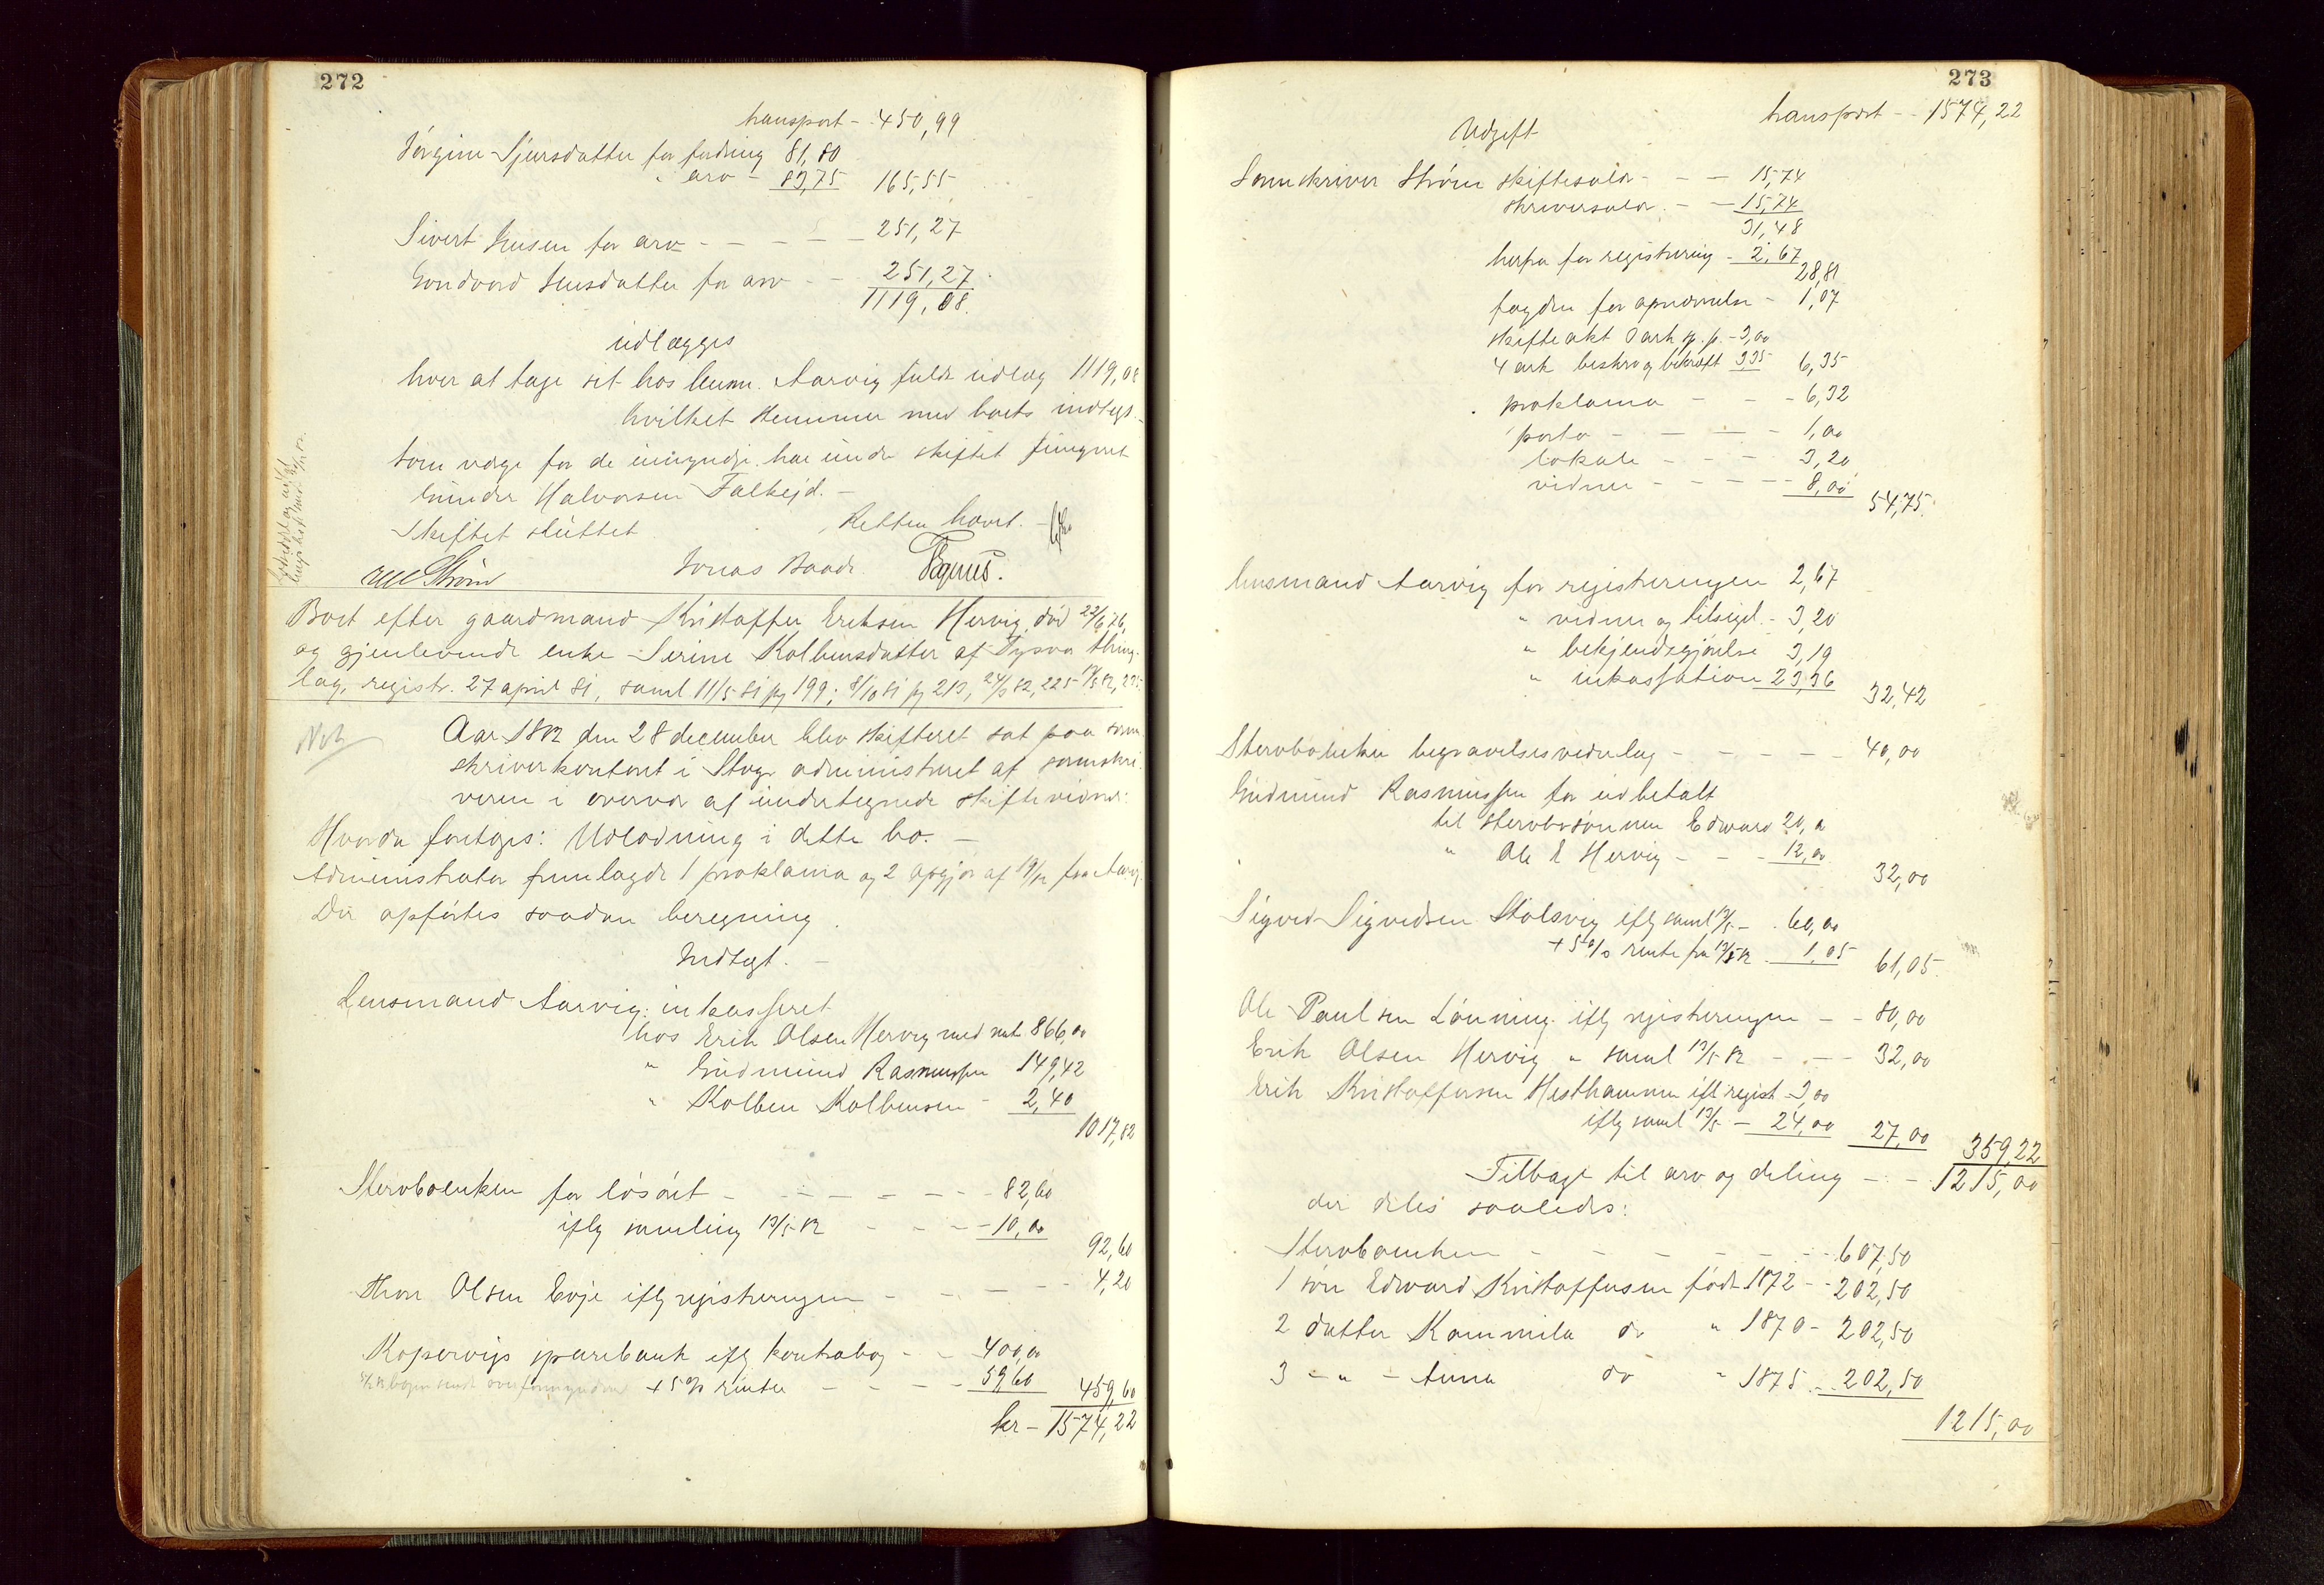 272
transport - 450,99
Jörgine Sjursdatter for fordring 81,80
" arv - 83,75 165,55
Sivert Jensen for arv - - - - - 251,27
Gondvord Jensdatter for arv - - 251,27
1119,08
udlægges
hver at tage sit hos lensm. Aarvig fuldt udlæg 1119,08
hvilket stemmer med boets indtægt.
Som værge for de umyndige har under skiftet fungeret
Gunder Halvorsen Falkejd. -
Skiftet sluttet Retten hævet. -
Strøm Jonas Baade
Boet efter gaardmand Kristoffer Eriksen Hervig, död 22/6 76,
og gjenlevende enke Serine Kolbensdatter af Tysvær thing-
lag, registr. 27 april 81, saml 11/5 81 pg 199; 8/10 81 pg 213, 24/3 82, 225
Aar 1882 den 28 december blev skifteret sat paa soren-
skriverkontoret i Stoge administreret af sorenskri-
veren i overvær af undertegnede skiftevidner:
Hvorda foretoges: Udlodning i dette bo. -
Administrator fremlagde 1 proklama og 2 opgjör af 19/12 fra Aarvig.
Der opförtes saadan beregning
Indtægt. -
Lensmand Aarvig: inkasseret
hos Erik Olsen Hervig med rent 866,00
" Gudmund Rasmussen 149,42
" Kolben Kolbensen - 2,40
1017,82
Stervboenken for lösöret - - - - - - 82,60
iflg samling 13/5 82 - - - - 10,00
92,60
Thor Olsen Eoje iflg registreringen - - - - 4,20
Kopervigs sparebank iflg kontrabog - - 400,00
+ 5% renter - - - - 59,60 459,60
kr - 1574,22
273
transport - - 1574,22
Udgift
Sorenskriver Ström skiftesalær - - - 15,74
skriversalær. - - 15,74
31,48
herfra for registrering - 2,67
28,81
fogden for opnævnelse - 1,07
skifteakt 3 ark st. p. - 3,00
4 ark beskr og bekræft 335 6,35
proklama - - - 6,32
porto - - - - 1,00
lokale - - - 3,20
vidner - - - - 8,00
54,75
lensmand Aarvig for registreringen 2,67
" vidner og tilsigel. - 3,20
" bekjendtgjörelse 3,19
" inkassation 23,36 32,42
Stervboenken begravelsesvederlag - - - - - 40,00
Gudmund Rasmussen for udbetalt
til stervbosönnen Edward 20,00
" Ole E Hervig - - - 12,00
32,00
Sigved Sigvedsen Stolsvig iflg saml 13/5 - 60,00
+ 5% rente fra 13/5 82 1,05 61,05.
Ole Paulsen Lönning iflg registreringen - - 80,00
Erik Olsen Hervig " saml 13/5 82 - - - 32,00
Erik Kristoffersen Hesthammer ifl regist 3,00
iflg saml 13/5 - 24,00 27,00 359,22
Tilbage til arv og deling - - 1215,00
der deles saaledes:
Stervboenken - - - - - - - 607,50
1 sön Edward Kristoffersen födt 1872 - - 202,50
2 datter Kammila do " 1870 - 202,50
3 - " - Anna do " 1875 - 202,50
1215,00